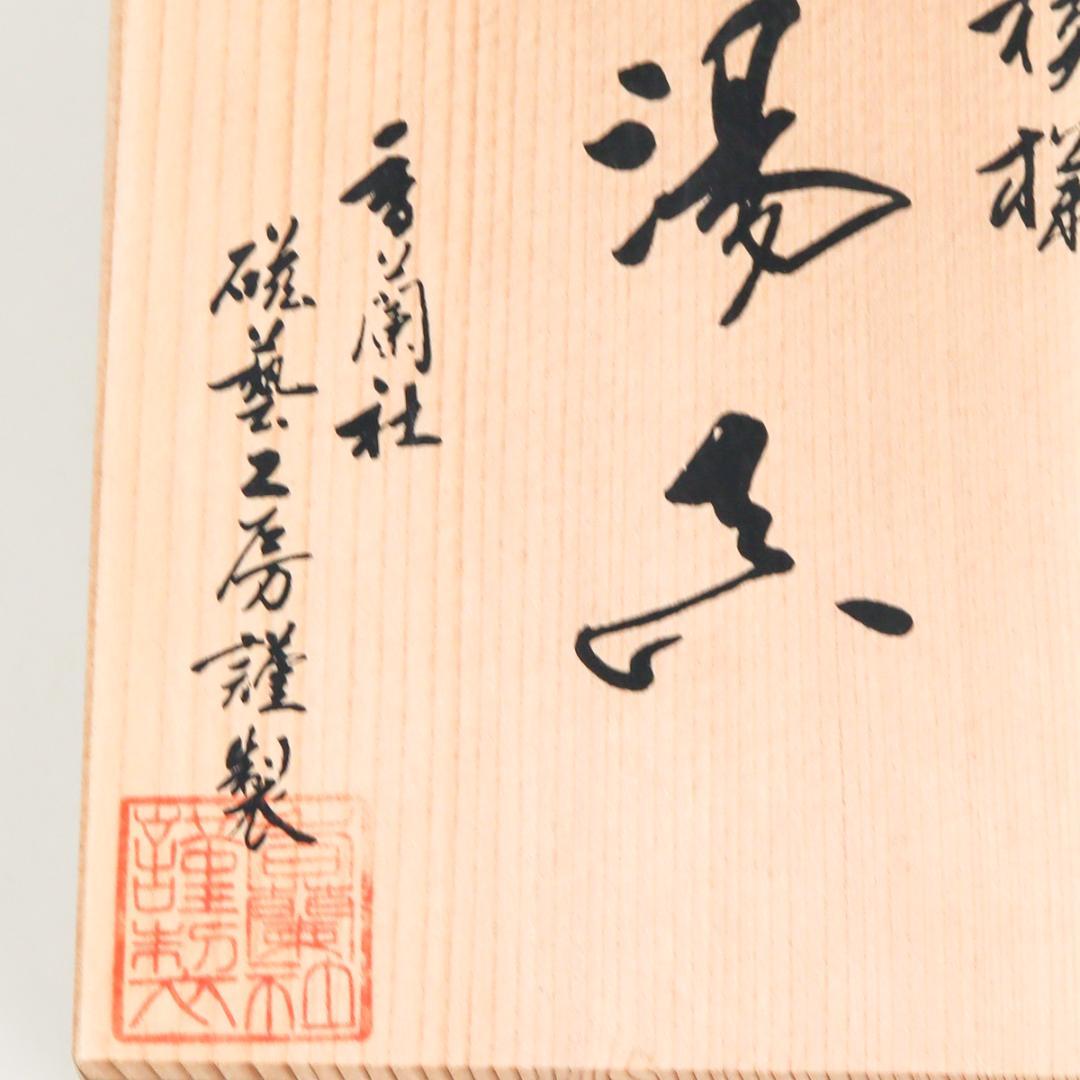 様
湯呑
香蘭社
磁藝工房謹製
香蘭社
謹製